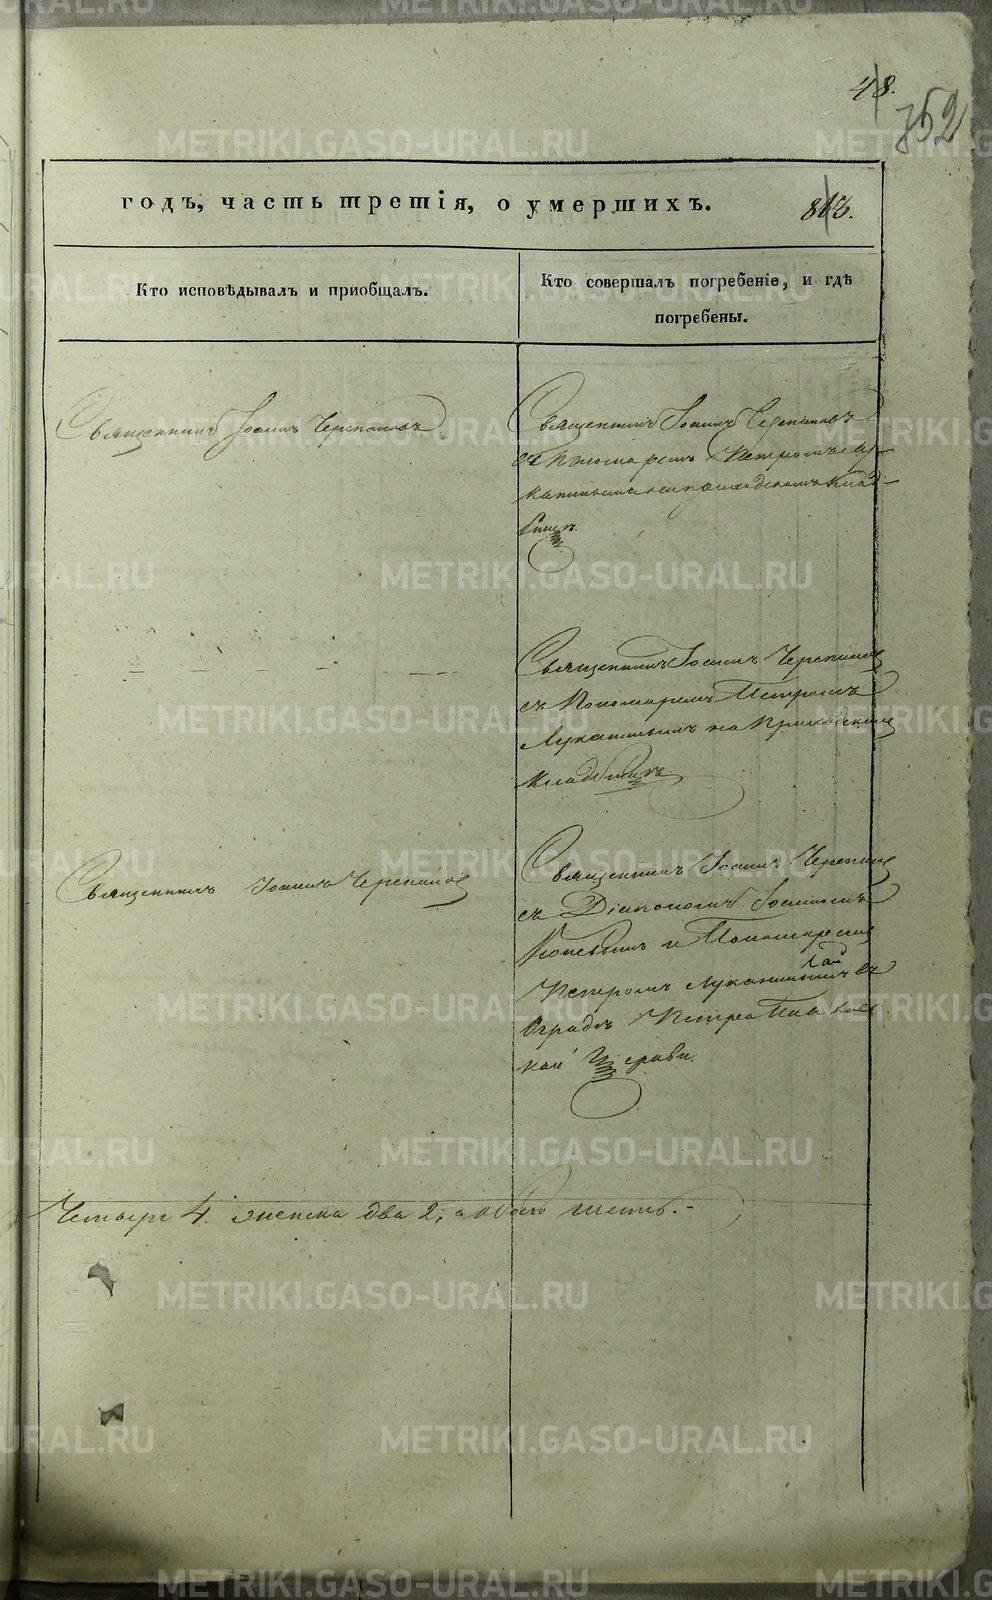 48.
352
годъ, часть третія, о умершихъ.
813.
Кто исповѣдывалъ и пріобщалъ.
Кто совершалъ погребеніе, и гдѣ
погребены.
Священникъ Іоаннъ Черепановъ
Священникъ Іоаннъ Черепановъ
съ Пономаремъ Петромъ Лу-
канинымъ на приходскомъ клад-
бищѣ.
Священникъ Іоаннъ Черепановъ
съ Пономаремъ Петромъ
Луканинымъ на Приходскомъ
кладбищѣ
Священникъ Іоаннъ Черепановъ
Священникъ Іоаннъ Черепановъ
съ Діакономъ Іоанномъ
и Пономаремъ
Петромъ Луканинымъ въ
Оградѣ Петропавлов
кой Церкви.
Четыре 4. женска два 2, а обоего шесть. -
METRIKI.GASO-URAL.RU